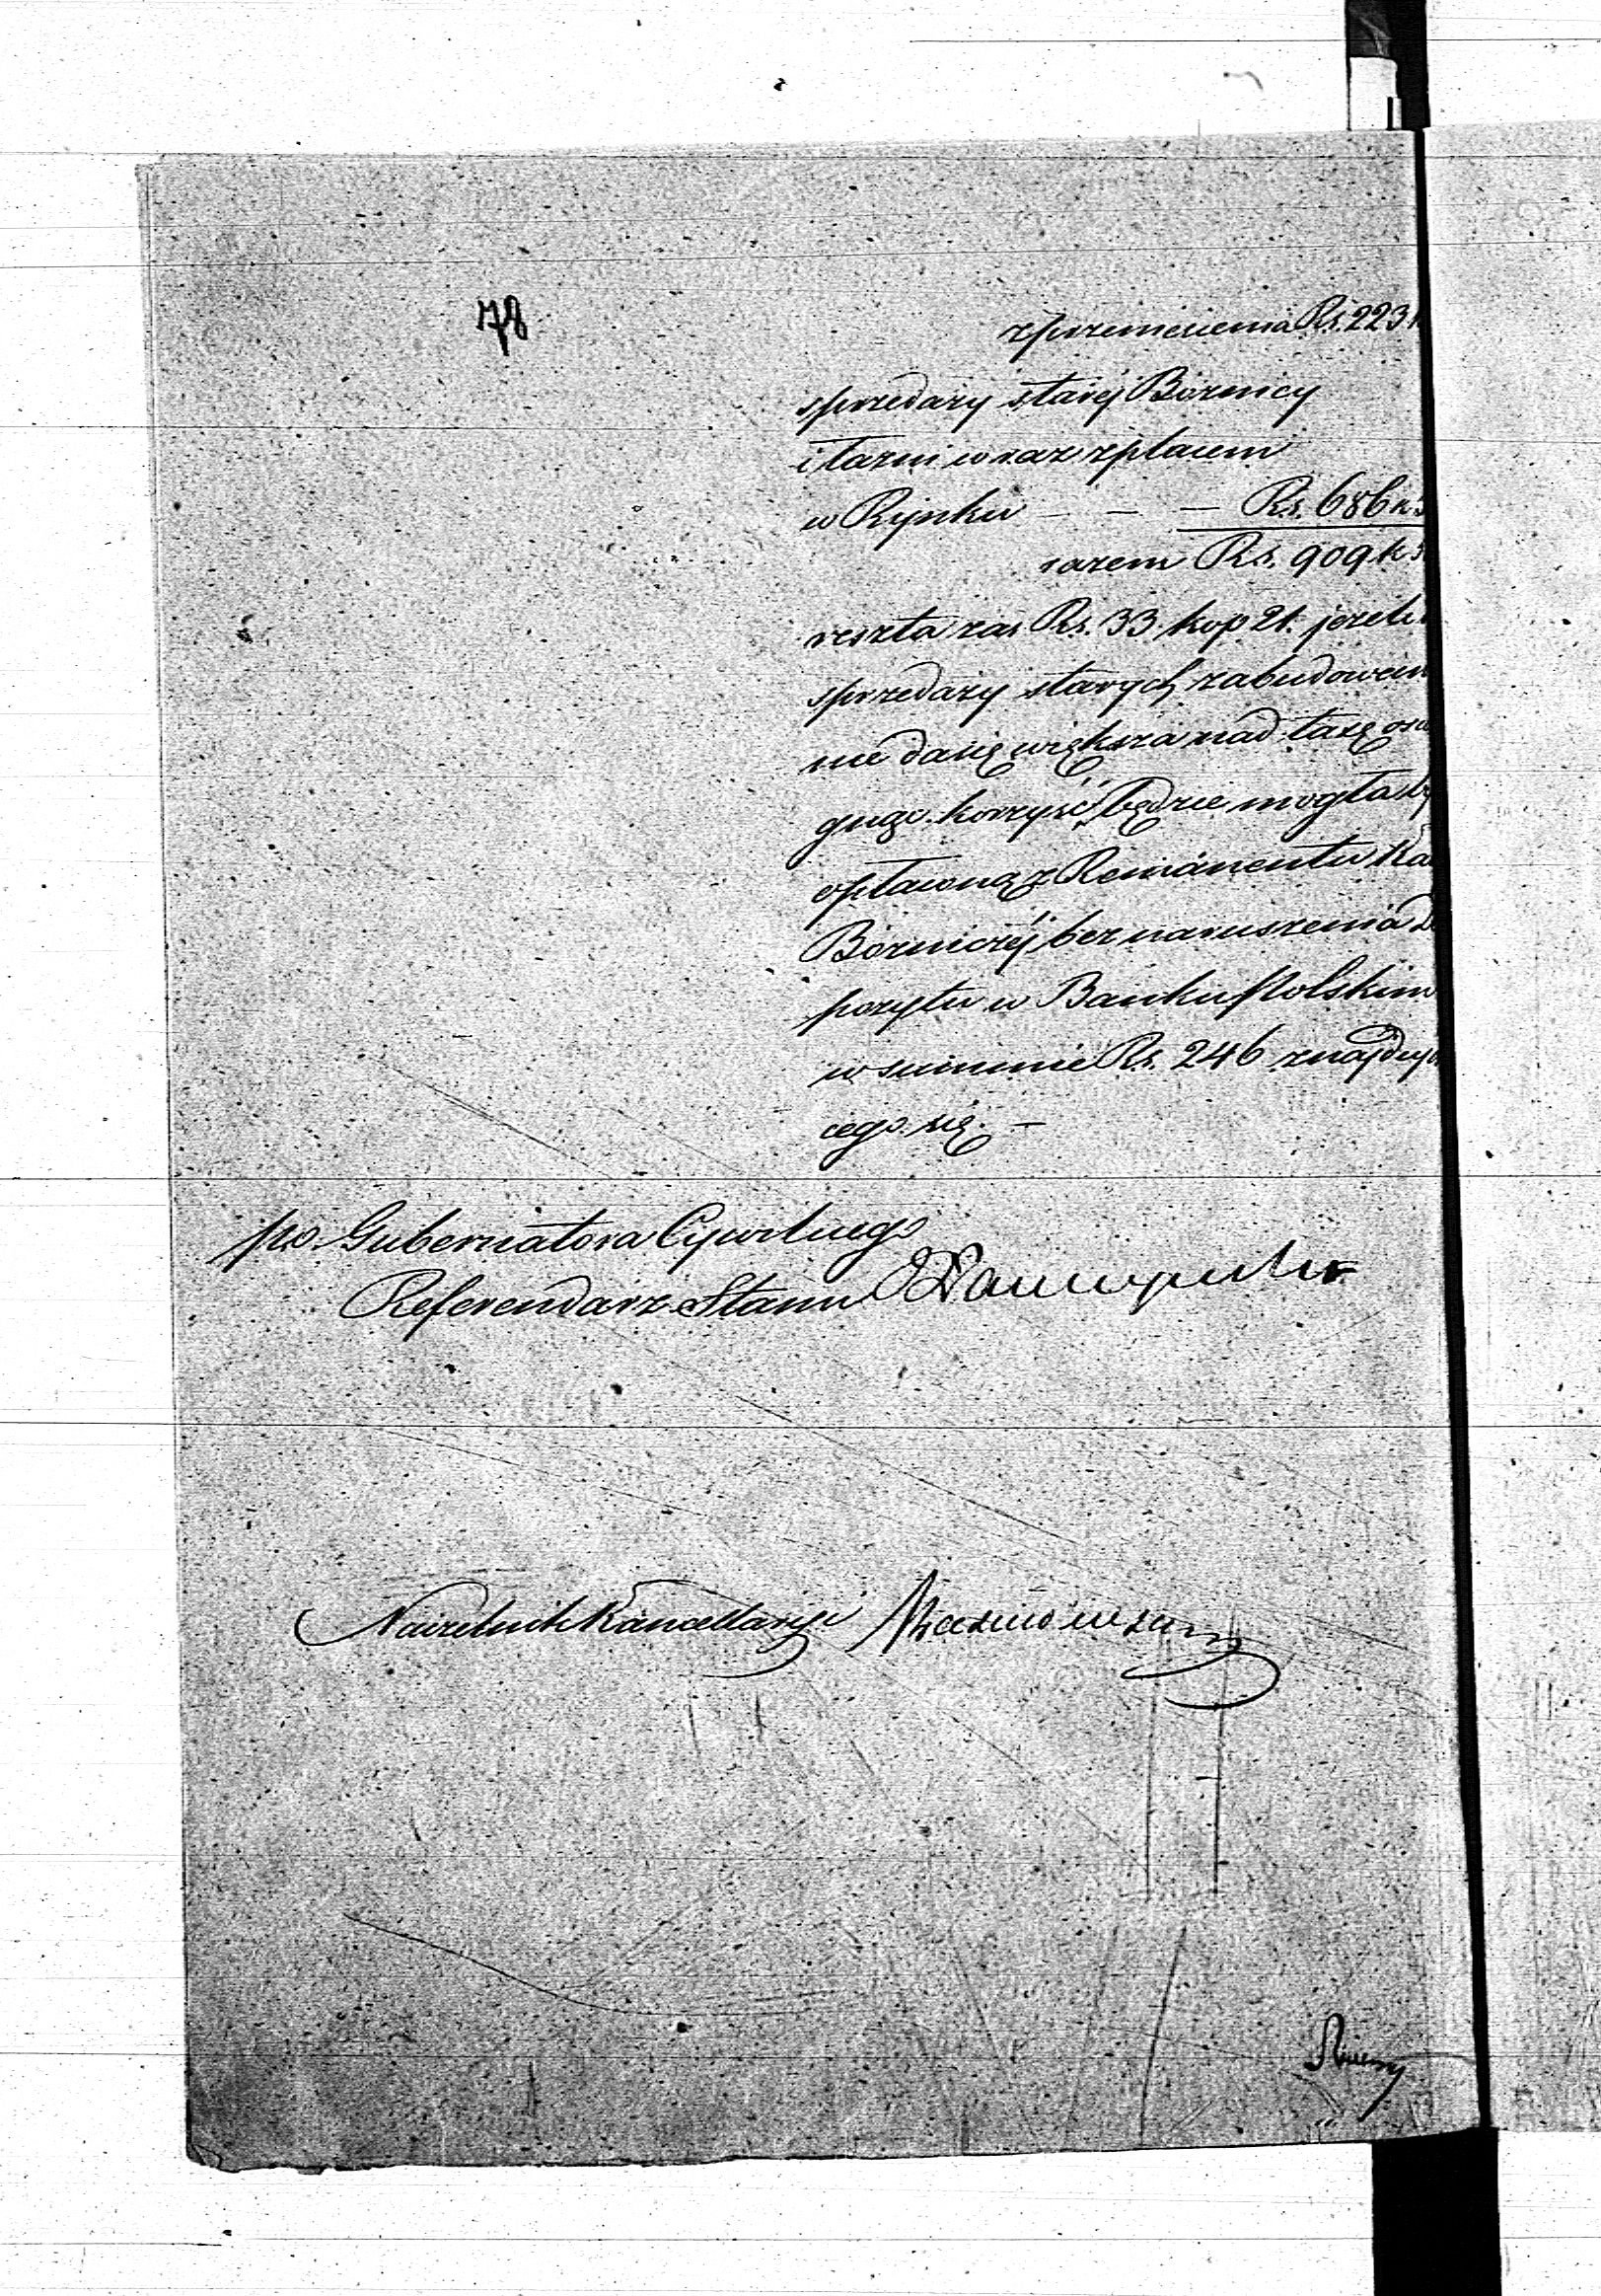 78
z przeniesienia Rs. 223 k
sprzedaży starej Bóżnicy
i łazni wraz z placem
w Rynku — — — Rs. 686 k 5
razem Rs. 909 k 5
reszta zas Rs. 33 kop 21. jeżeli
sprzedaży starych zabudowań
nie da się większa nad taxę osią
gnąć korzyść, będzie mogła by
opłaconą z Remanentu Ka
Bożniczej bez naruszenia De
pozytu w Banku Polskim
w summie Rs. 246 znajdują
cego się. —
po. Gubernatora Cywilnego
Referendarz Stanu
Naczelnik Kancellaryi